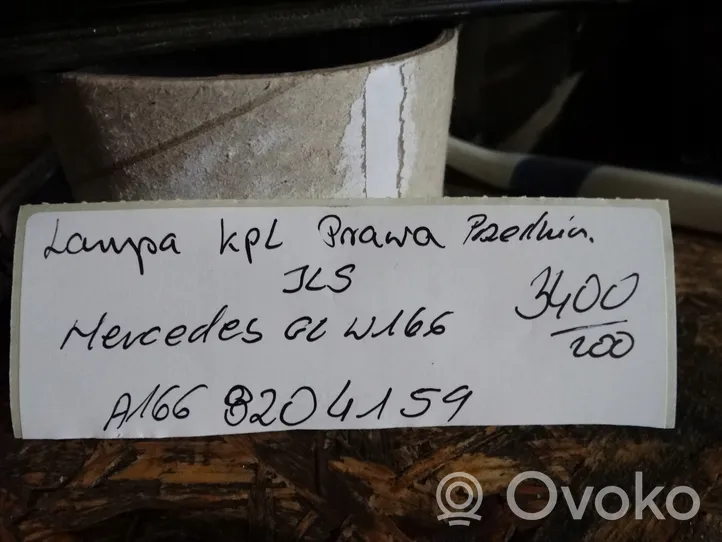 Lampa kpl Prawa Przednia.
ILS
Mercedes GL W166
3400
200
A166 8204159
Ovoko